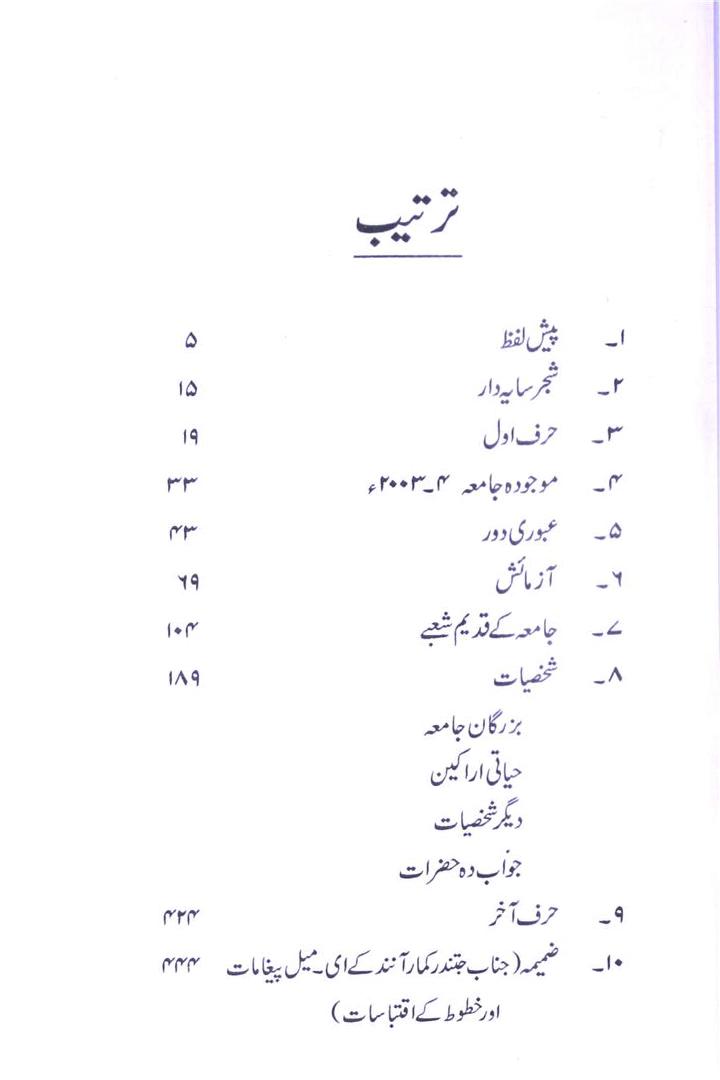 ترتیب
۱۔ پیش لفظ ۵
۲۔ شجر سایہ دار ۱۵
۳۔ حرف اول ۱۹
۴۔ موجودہ جامعہ ۴۔۲۰۰۳ء ۳۳
۵۔ عبوری دور ۴۳
۶۔ آزمائش ۶۹
۷۔ جامعہ کے قدیم شعبے ۱۰۴
۸۔ شخصیات ۱۸۹
بزرگان جامعہ
حیاتی اراکین
دیگر شخصیات
جواب دہ حضرات
۹۔ حرف آخر ۴۲۴
۱۰۔ ضمیمہ (جناب جتندر کمار آنند کے ای۔میل پیغامات ۴۴۴
اور خطوط کے اقتباسات)